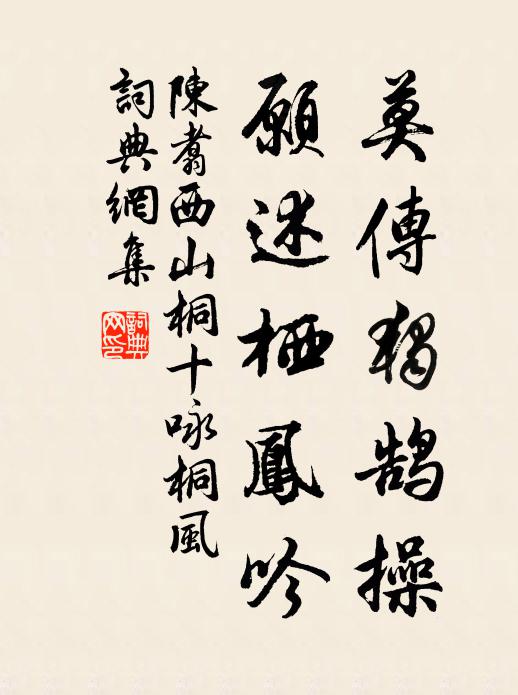 莫傳獨鹄操
願述栖鳳吟
陳翥西山桐十咏桐風
詞典網集
詞典網印